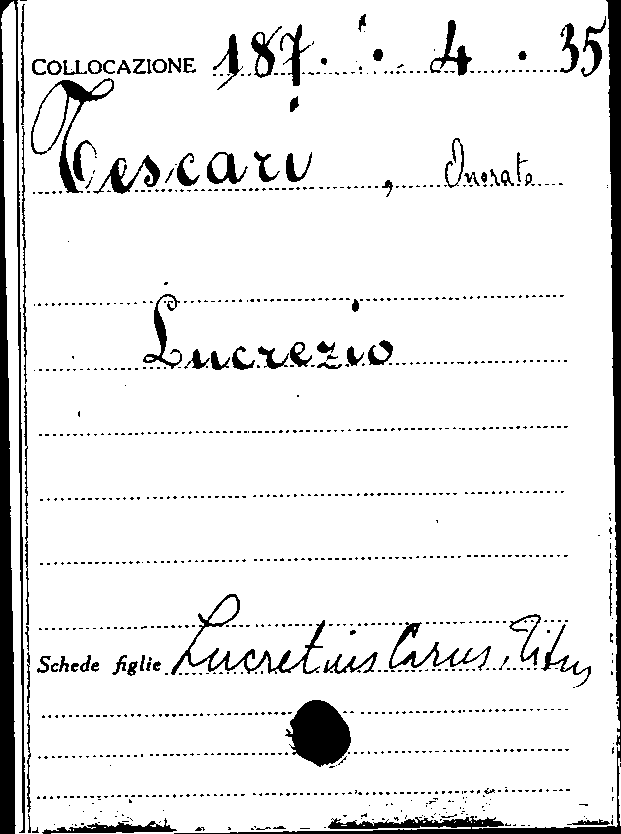 COLLOCAZIONE 187. . 4 . 35
Tescari , Onorato
Lucrezio
Schede figlie Lucretius Carus, Titus